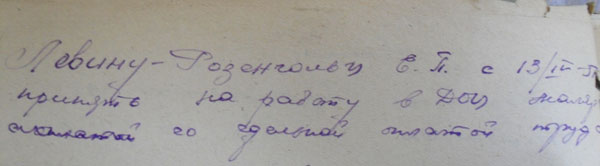 Левину-Розенгольц Е.П. с 13/III-
принять на работу в ДОЦ маляр
со сдельной оплатой труда